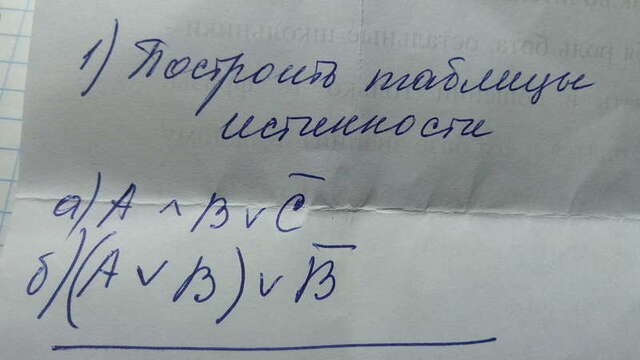 1) Построить таблицы
истинности
а) A ∧ B ∨ C̅
б) (A ∨ B) ∨ B̅